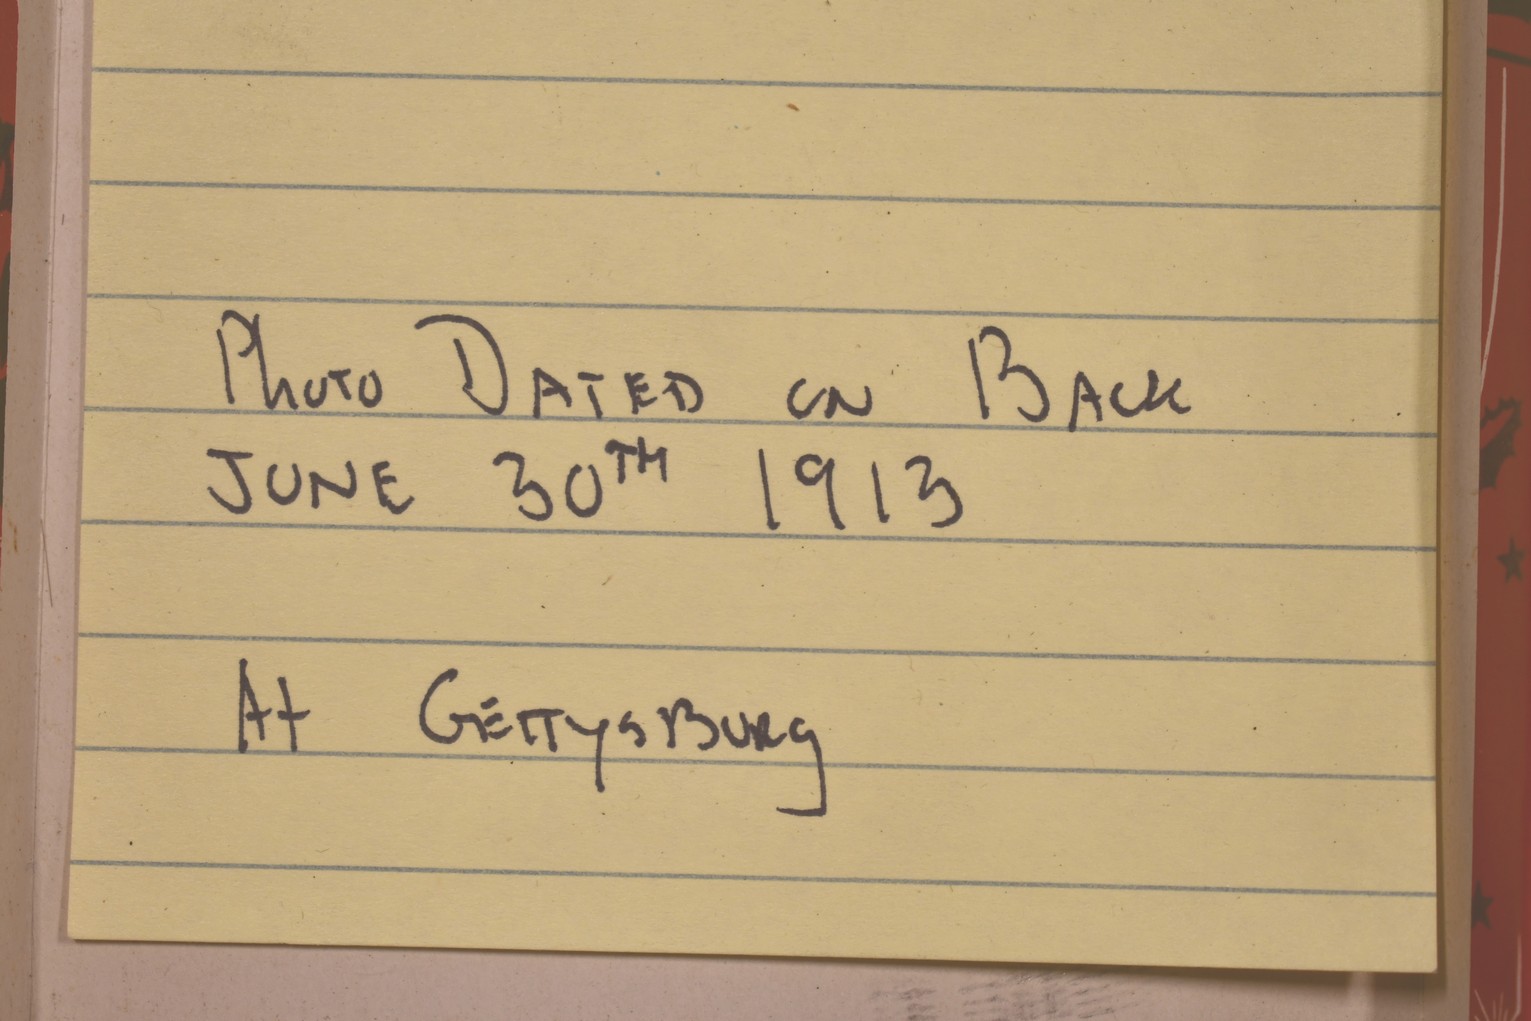 Photo Dated on Back
June 30TH 1913
At Gettysburg